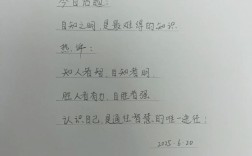 今日话题:
自知之明 是最难得的知识.
热评:
知人者智,自知者明
胜人者有力,自胜者强
认识自己,是通往智慧的唯一途径!
2025.6.20